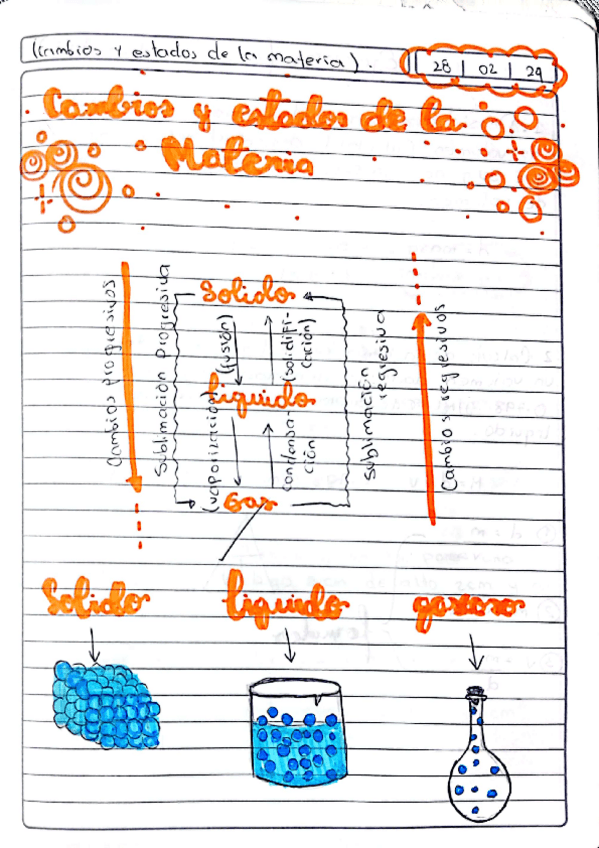 (Cambios y estados de la materia).
28 | 02 | 24
Cambios y estados de la
Materia
Cambios progresivos
Sublimación Progresiva
Solido
(fusión)
(solidifi-
cación)
liquido
(vaporización)
condensa-
ción
Gas
Sublimación
regresiva
Cambios regresivos
Solido
liquido
gaseoso